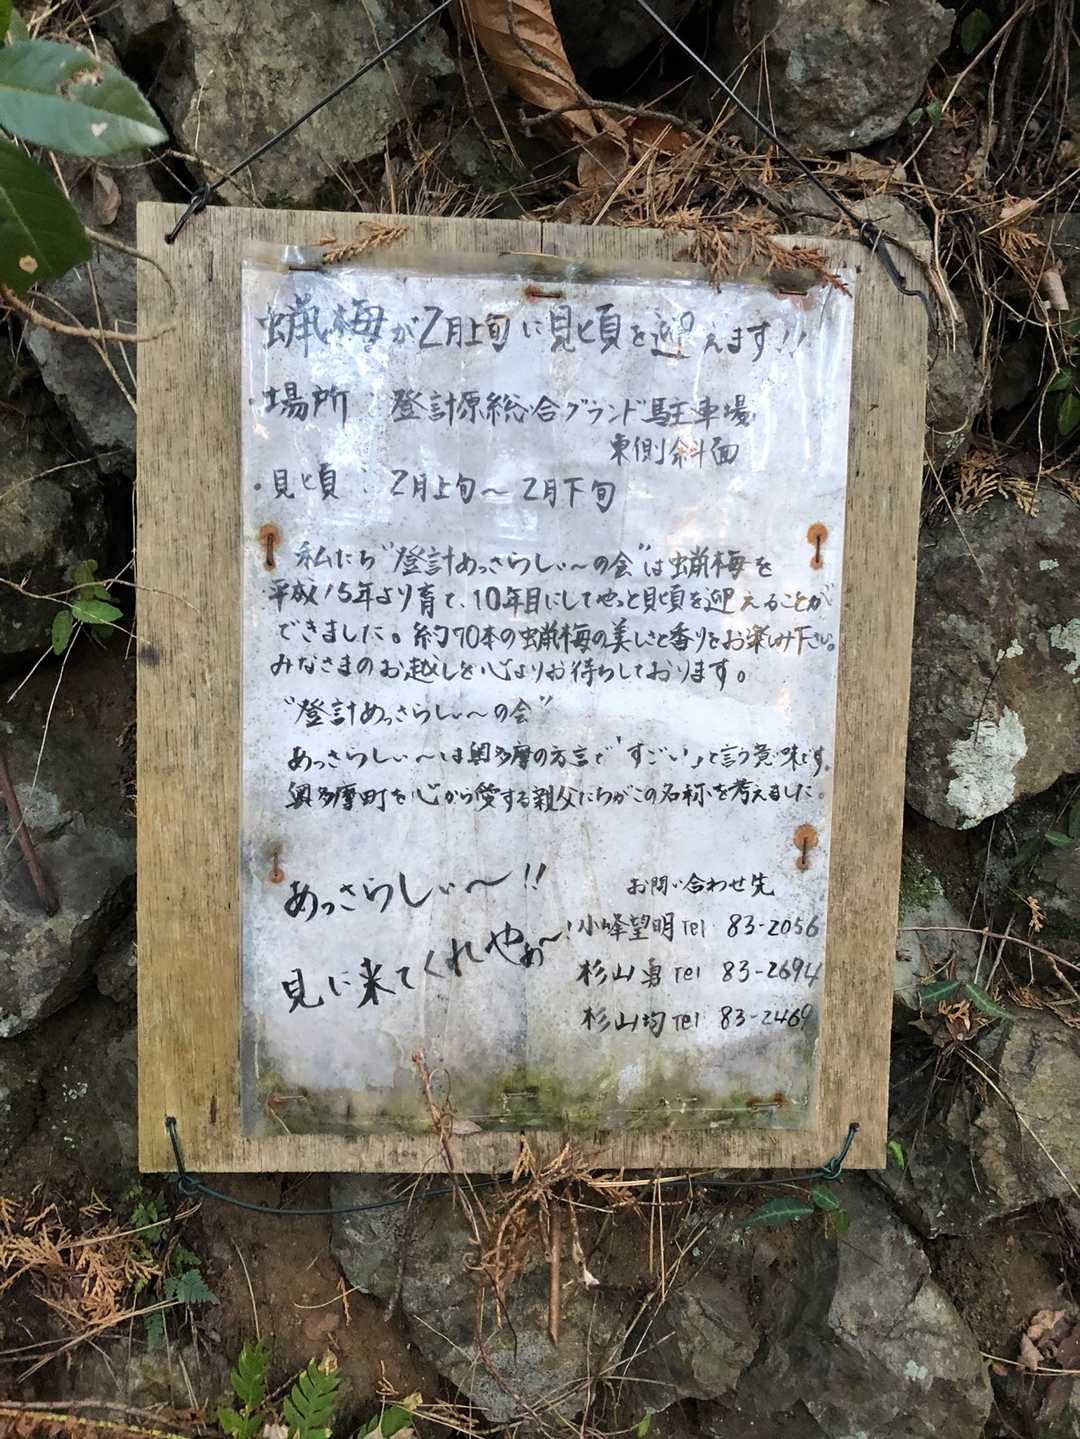 蝋梅が2月上旬に見頃を迎えます!!
・場所 登計原総合グランド駐車場
東側斜面
・見頃:2月上旬〜2月下旬
私たち"登計めっさらしぃ〜の会"は蝋梅を
平成15年より育て、10年目にしてやっと見頃を迎えることが
できました。約70本の蝋梅の美しさと香りをお楽しみ下さい。
みなさまのお越しを心よりお待ちしております。
"登計めっさらしぃ〜の会"
めっさらしぃ〜は奥多摩の方言で「すごい」と言う意味です。
奥多摩町を心から愛する親父たちがこの名称を考えました。
めっさらしぃ〜!!
見に来てくれやぁ〜!
お問い合わせ先
小峰望明 Tel 83-2056
杉山勇 Tel 83-2694
杉山均 Tel 83-2469